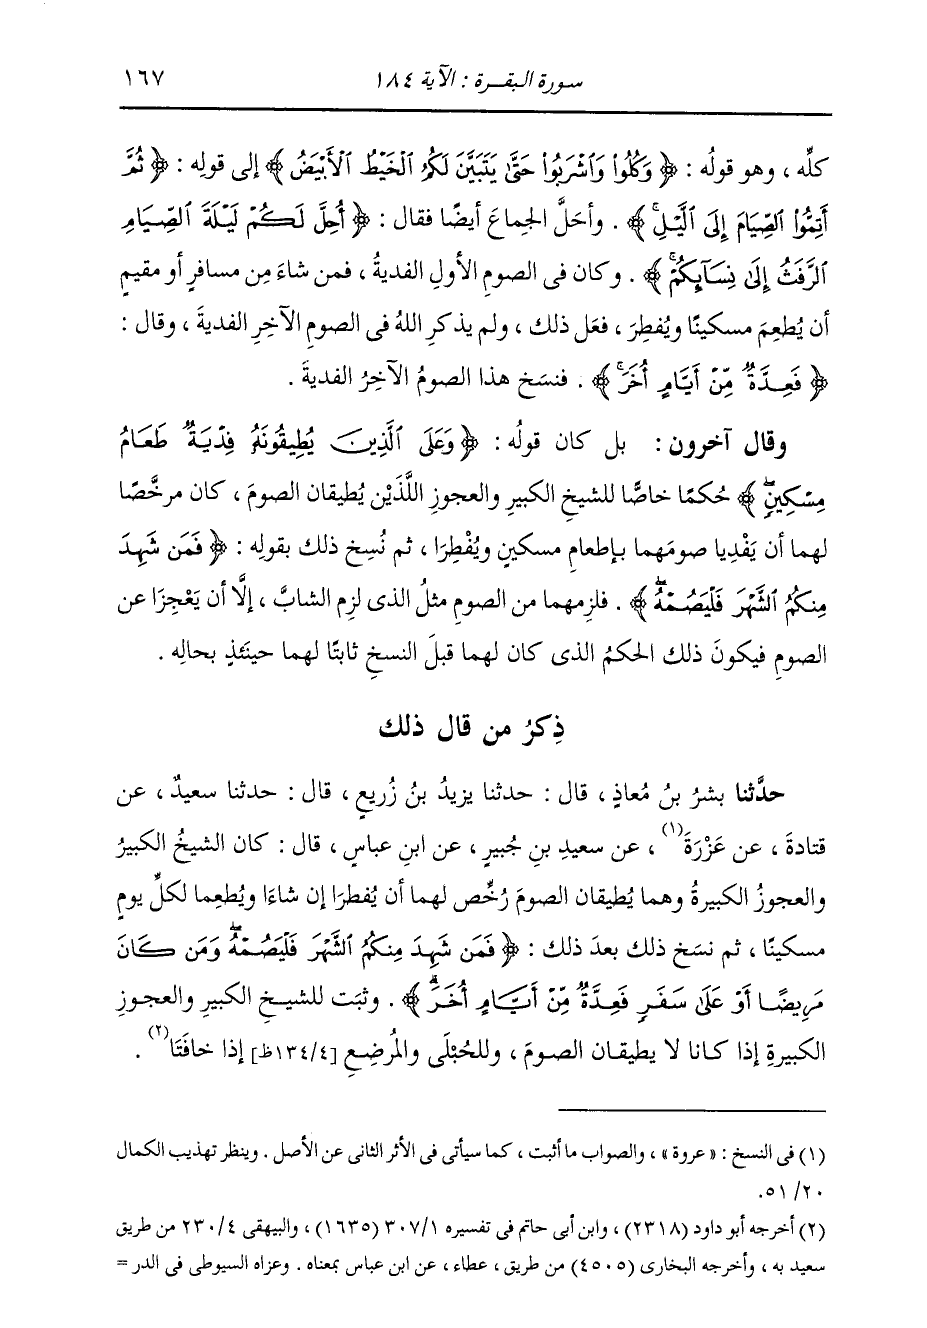 سورة البقرة : الآية ١٨٤ ١٦٧
كلِّه ، وهو قولُه : ﴿ وَكُلُوا۟ وَٱشْرَبُوا۟ حَتَّىٰ يَتَبَيَّنَ لَكُمُ ٱلْخَيْطُ ٱلْأَبْيَضُ ﴾ إلى قولِه : ﴿ ثُمَّ
أَتِمُّوا۟ ٱلصِّيَامَ إِلَى ٱلَّيْلِۚ ﴾ . وأحَلَّ الجماعَ أيضًا فقال : ﴿ أُحِلَّ لَكُمْ لَيْلَةَ ٱلصِّيَامِ
ٱلرَّفَثُ إِلَىٰ نِسَآئِكُمْۚ ﴾ . وكان فى الصومِ الأولِ الفديةُ ، فمن شاءَ مِن مسافرٍ أو مقيمٍ
أن يُطعِمَ مسكينًا ويُفطِرَ ، فعَل ذلك ، ولم يذكرِ اللهُ فى الصومِ الآخِرِ الفديةَ ، وقال :
﴿ فَعِدَّةٌ مِّنْ أَيَّامٍ أُخَرَۚ ﴾ . فنسَخ هذا الصومُ الآخِرُ الفديةَ .
وقال آخرون : بل كان قولُه : ﴿ وَعَلَى ٱلَّذِينَ يُطِيقُونَهُۥ فِدْيَةٌ طَعَامُ
مِسْكِينٍۖ ﴾ حُكمًا خاصًّا للشيخِ الكبيرِ والعجوزِ اللَّذَيْن يُطيقان الصومَ ، كان مرخَّصًا
لهما أن يَفْدِيا صومَهما بإطعامِ مسكينٍ ويُفْطِرَا ، ثم نُسِخ ذلك بقولِه : ﴿ فَمَن شَهِدَ
مِنكُمُ ٱلشَّهْرَ فَلْيَصُمْهُۖ ﴾ . فلزِمهما من الصومِ مثلُ الذى لزِم الشابَّ ، إلَّا أن يَعْجِزَا عن
الصومِ فيكونَ ذلك الحكمُ الذى كان لهما قبلَ النسخِ ثابتًا لهما حينَئذٍ بحالِه .
ذِكرُ من قال ذلك
حدَّثنا بشرُ بنُ مُعاذٍ ، قال : حدثنا يزيدُ بنُ زُريعٍ ، قال : حدثنا سعيدٌ ، عن
قتادةَ ، عن عَزْرَةَ(١) ، عن سعيدِ بنِ جُبيرٍ ، عن ابنِ عباسٍ ، قال : كان الشيخُ الكبيرُ
والعجوزُ الكبيرةُ وهما يُطيقان الصومَ رُخِّص لهما أن يُفطرَا إن شاءَا ويُطعِما لكلِّ يومٍ
مسكينًا ، ثم نسَخ ذلك بعدَ ذلك : ﴿ فَمَن شَهِدَ مِنكُمُ ٱلشَّهْرَ فَلْيَصُمْهُۖ وَمَن كَانَ
مَرِيضًا أَوْ عَلَىٰ سَفَرٍ فَعِدَّةٌ مِّنْ أَيَّامٍ أُخَرَۗ ﴾ . وثبَت للشيخِ الكبيرِ والعجوزِ
الكبيرةِ إذا كانا لا يطيقان الصومَ ، وللحُبْلَى والمُرضِعِ [٤/ ١٣٤ظ] إذا خافَتَا(٢) .
(١) فى النسخ : « عروة » ، والصواب ما أثبت ، كما سيأتى فى الأثر الثانى عن الأصل . وينظر تهذيب الكمال
٢٠/ ٥١.
(٢) أخرجه أبو داود (٢٣١٨) ، وابن أبى حاتم فى تفسيره ٣٠٧/١ (١٦٣٥) ، والبيهقى ٢٣٠/٤ من طريق
سعيد به ، وأخرجه البخارى (٤٥٠٥) من طريق ، عطاء ، عن ابن عباس بمعناه . وعزاه السيوطى فى الدر =